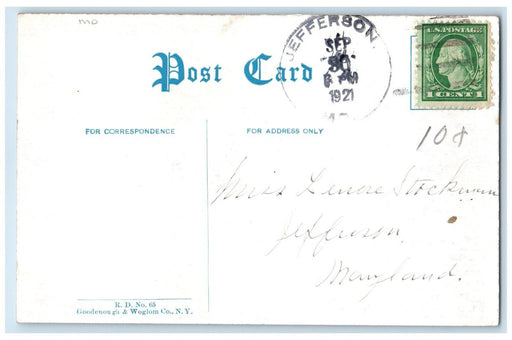 mo
JEFFERSON,
SEP
30
6 PM
1921
U.S. POSTAGE
1 CENT 1
Post Card
FOR CORRESPONDENCE
FOR ADDRESS ONLY
10¢
Miss Lenore Stockman
Jefferson,
Maryland.
R. D. No. 65
Goodenough & Woglom Co., N. Y.